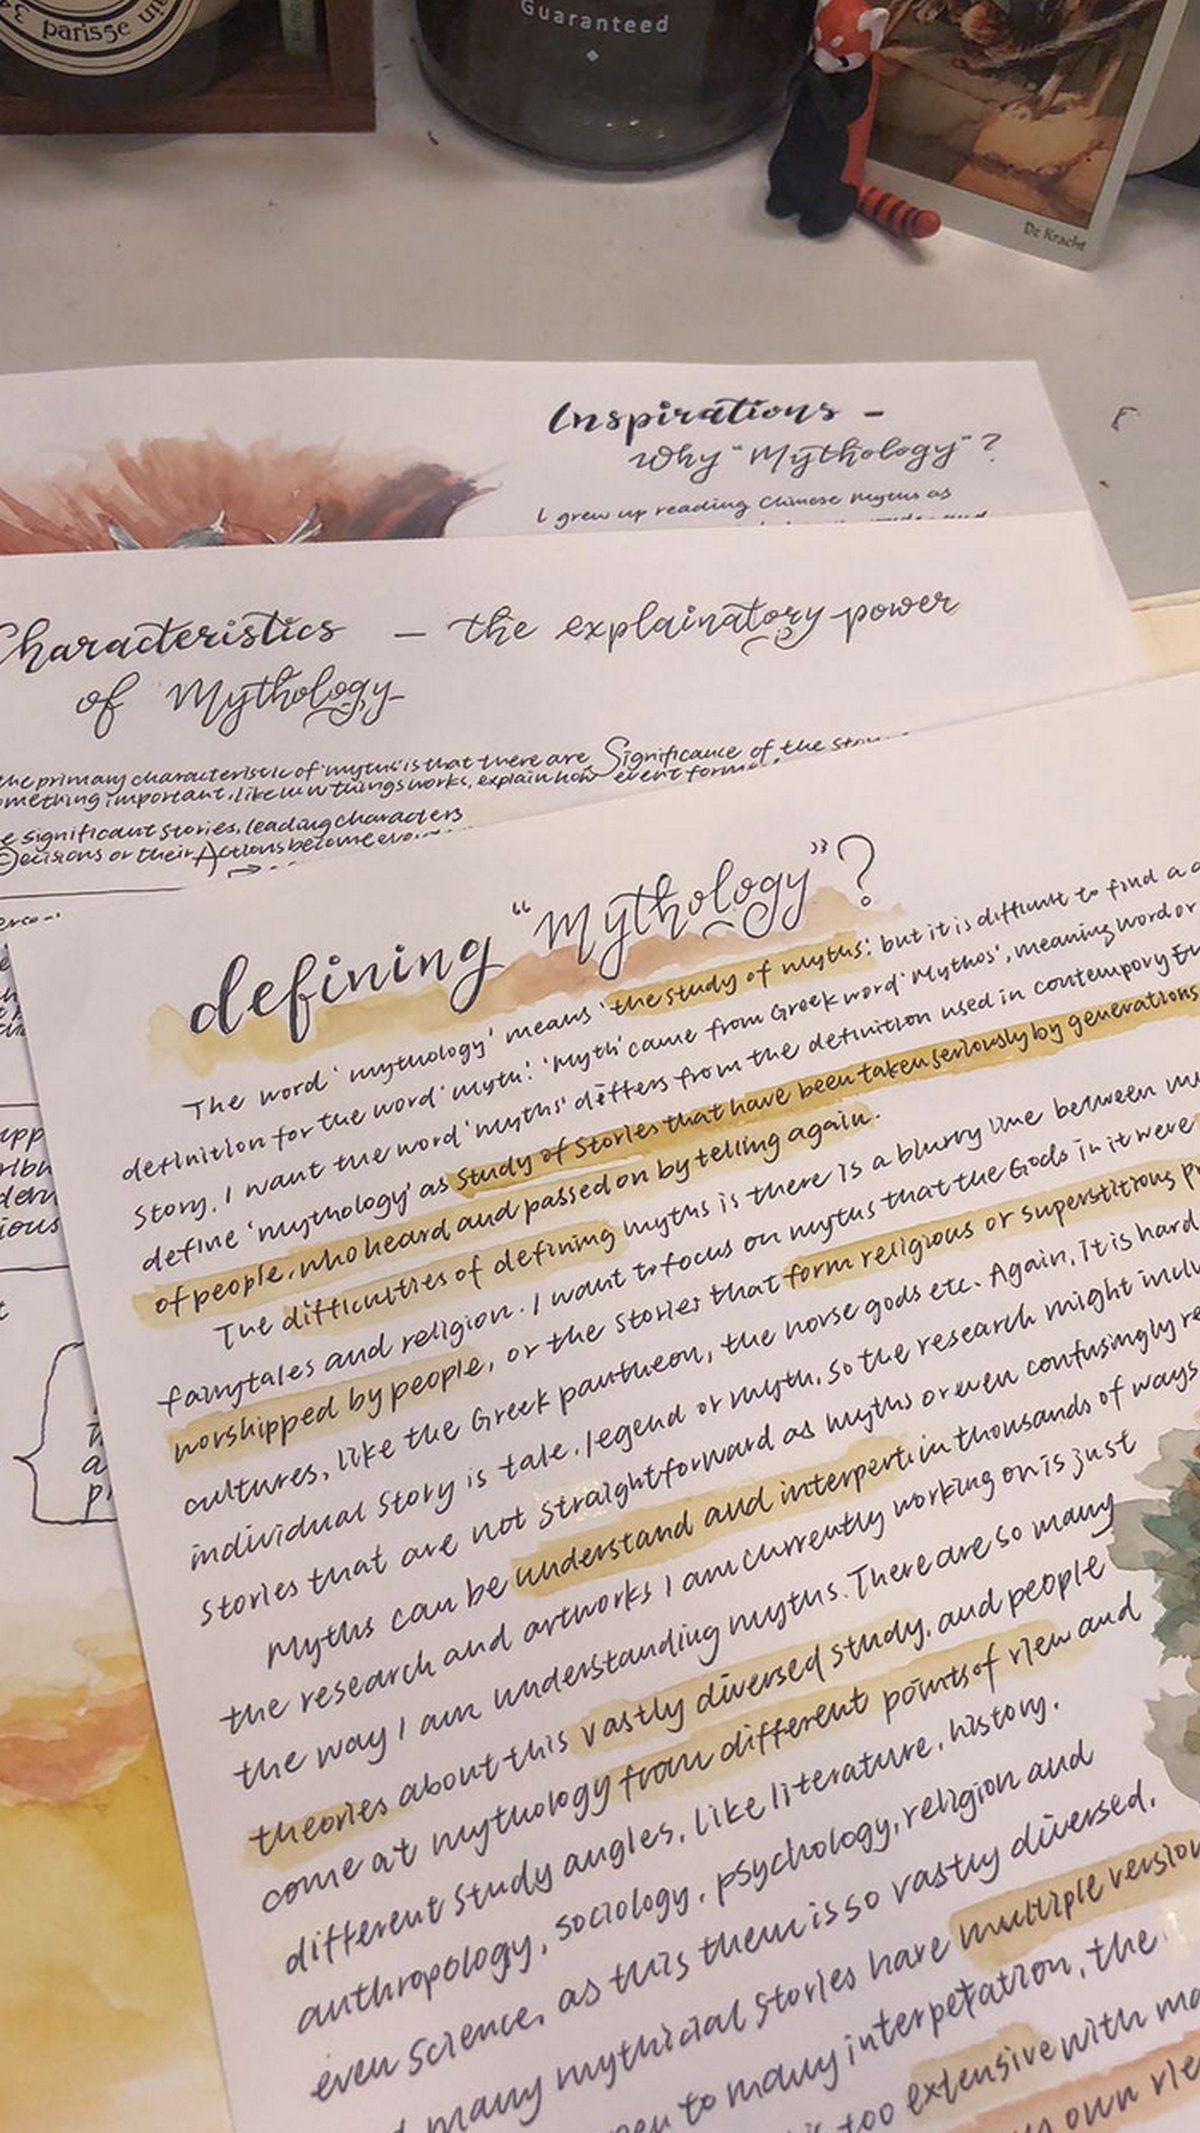 parisse
34
Guaranteed
De Kracht
Inspirations -
Why "Mythology"?
I grew up reading Chinese myths as
Characteristics - the explainatory power
of Mythology
the primary characteristic of 'myths' is that there are Significance of the
omething important, like how things works, explain how event
e significant stories, leading characters
Decisions or their Actions become
defining "Mythology"?
The word 'mythology' means 'the study of myths'. but it is difficult to find a
definition for the word 'myth'. 'Myth' came from Greek word 'Mythos', meaning word or
story. I want the word 'myths' differs from the definition used in contempory
define 'mythology' as Study of Stories that have been taken seriously by generations
of people, who heard and passed on by telling again.
The difficulties of defining myths is there is a blurry line between
fairytales and religion. I want to focus on myths that the Gods in it were
worshipped by people, or the stories that form religious or superstitious
cultures, like the Greek pantheon, the norse gods etc. Again, it is hard
individual Story is tale, legend or myth, so the research might
stories that are not straightforward as myths or even confusingly
Myths can be understand and interpert in thousands of ways
the research and artworks I am currently working on is just
the way I am understanding myths. There are so many
theories about this vastly diversed study, and people
come at mythology from different points of view and
different study angles, like literature, history,
anthropology, sociology, psychology, religion and
even Science, as this them is so vastly diversed,
many mythicial stories have multiple
to many interpetation, the
too extensive with
own